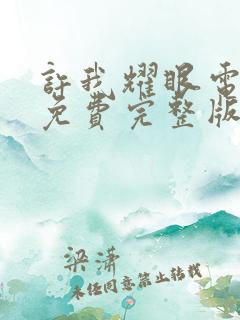 許我耀眼電
免費完整版
梁潇
未经同意禁止转载